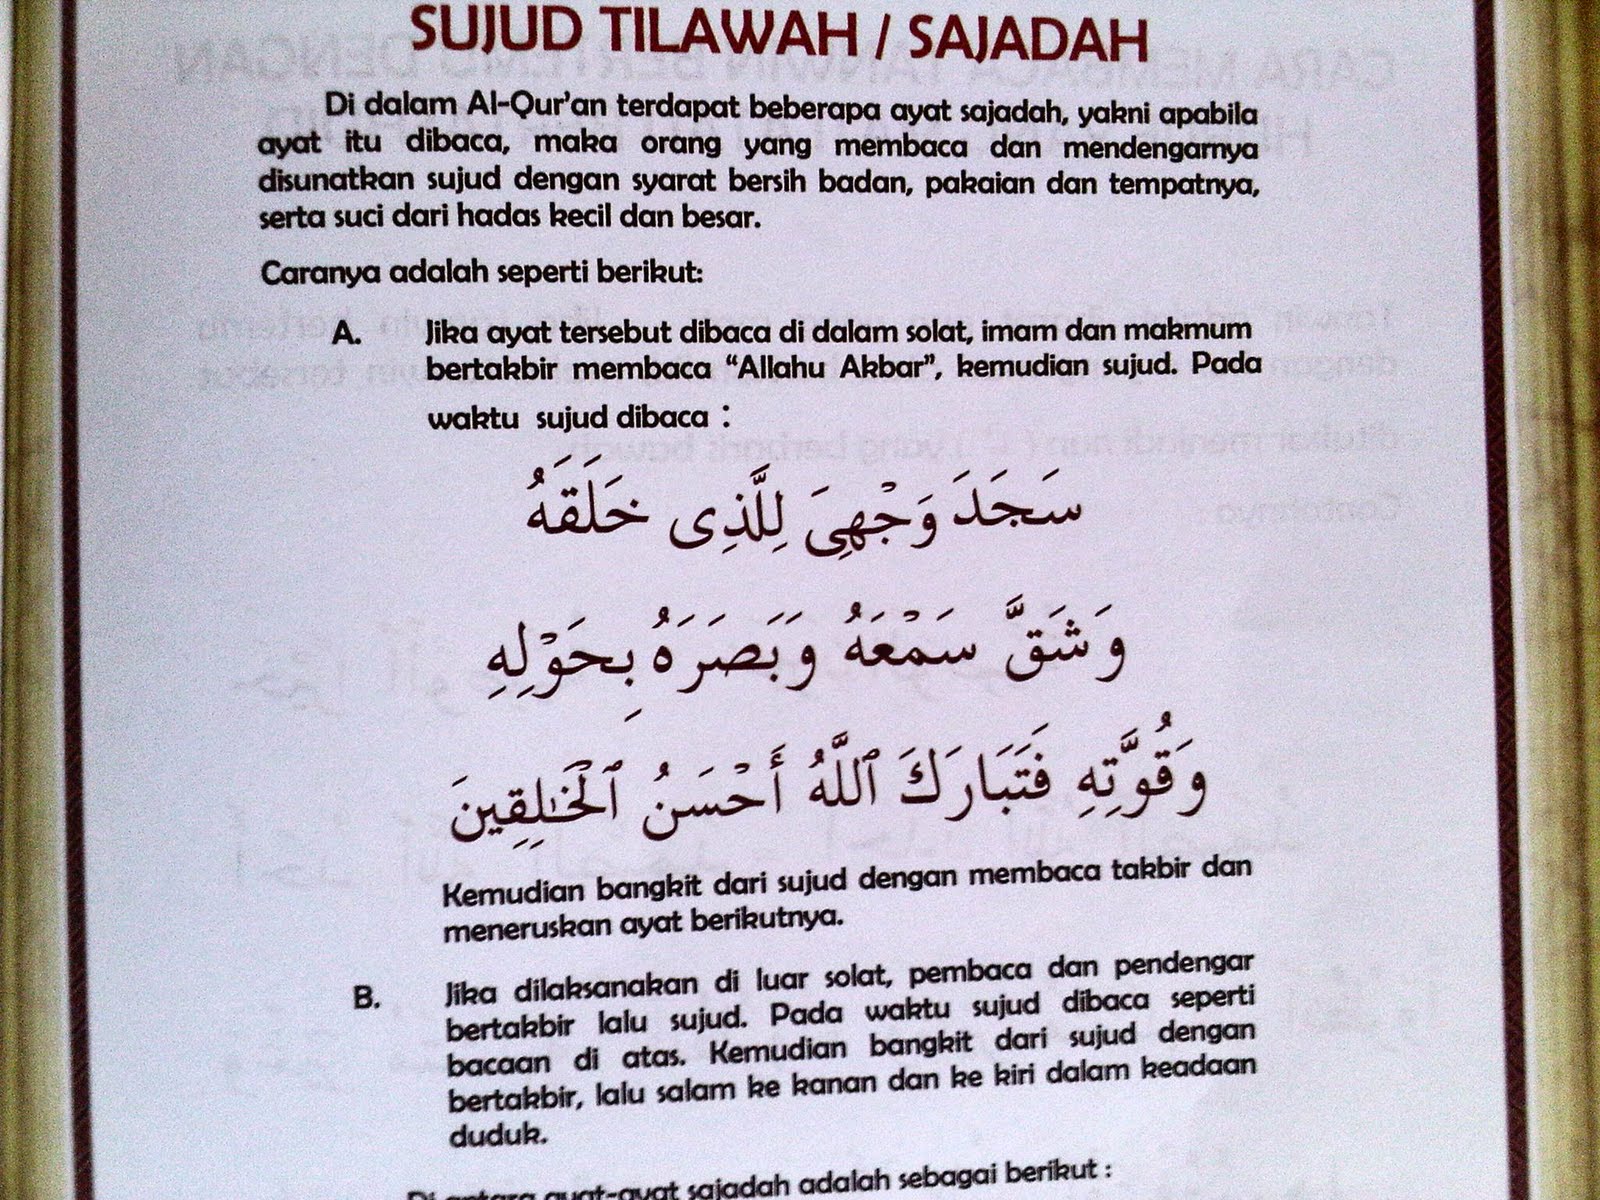 SUJUD TILAWAH / SAJADAH
Di dalam Al-Qur’an terdapat beberapa ayat sajadah, yakni apabila
ayat itu dibaca, maka orang yang membaca dan mendengarnya
disunatkan sujud dengan syarat bersih badan, pakaian dan tempatnya,
serta suci dari hadas kecil dan besar.
Caranya adalah seperti berikut:
A. Jika ayat tersebut dibaca di dalam solat, imam dan makmum
bertakbir membaca “Allahu Akbar”, kemudian sujud. Pada
waktu sujud dibaca :
سَجَدَ وَجْهِىَ لِلَّذِى خَلَقَهُ
وَشَقَّ سَمْعَهُ وَبَصَرَهُ بِحَوْلِهِ
وَقُوَّتِهِ فَتَبَارَكَ ٱللَّهُ أَحْسَنُ ٱلْخَٰلِقِينَ
Kemudian bangkit dari sujud dengan membaca takbir dan
meneruskan ayat berikutnya.
B. Jika dilaksanakan di luar solat, pembaca dan pendengar
bertakbir lalu sujud. Pada waktu sujud dibaca seperti
bacaan di atas. Kemudian bangkit dari sujud dengan
bertakbir, lalu salam ke kanan dan ke kiri dalam keadaan
duduk.
Di antara ayat-ayat sajadah adalah sebagai berikut :